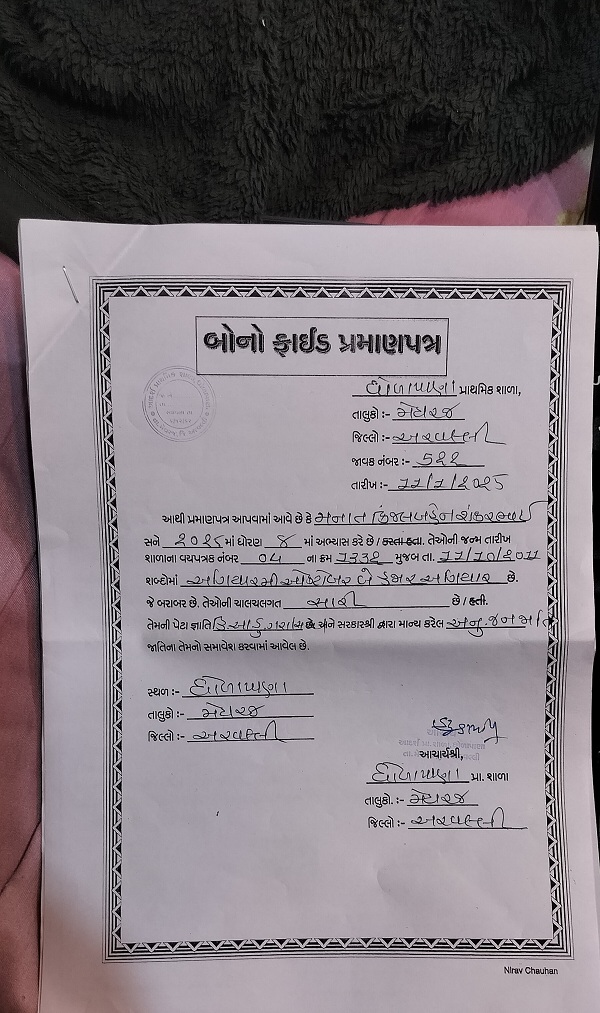 બોનો ફાઈડ પ્રમાણપત્ર
ધોળાપાણા પ્રાથમિક શાળા,
તાલુકો :- મેઘરજ
જિલ્લો :- અરવલ્લી
જાવક નંબર :- 522
તારીખ :- 11/1/2025
આથી પ્રમાણપત્ર આપવામાં આવે છે કે મનાત કિંજલબહેન શંકરભાઈ
સને માં ધોરણ 8 માં અભ્યાસ કરે છે / કરતા હતા. તેઓની જન્મ તારીખ
શાળાના વયપત્રક નંબર 04 ના ક્રમ 1332 મુજબ તા. 11/10/2011
શબ્દોમાં અગિયારમી ઓક્ટોબર બે હજાર અગિયાર છે.
જે બરાબર છે. તેઓની ચાલચલગત સારી છે / હતી.
તેમની પેટા જ્ઞાતિ છે અને સરકારશ્રી દ્વારા માન્ય કરેલ અનુ. જનજાતિ
જાતિના તેમનો સમાવેશ કરવામાં આવેલ છે.
સ્થળ :- ધોળાપાણા
તાલુકો :- મેઘરજ
જિલ્લો :- અરવલ્લી
આચાર્યશ્રી,
ધોળાપાણા પ્રા. શાળા
તાલુકો. :- મેઘરજ
જિલ્લો :- અરવલ્લી
Nirav Chauhan